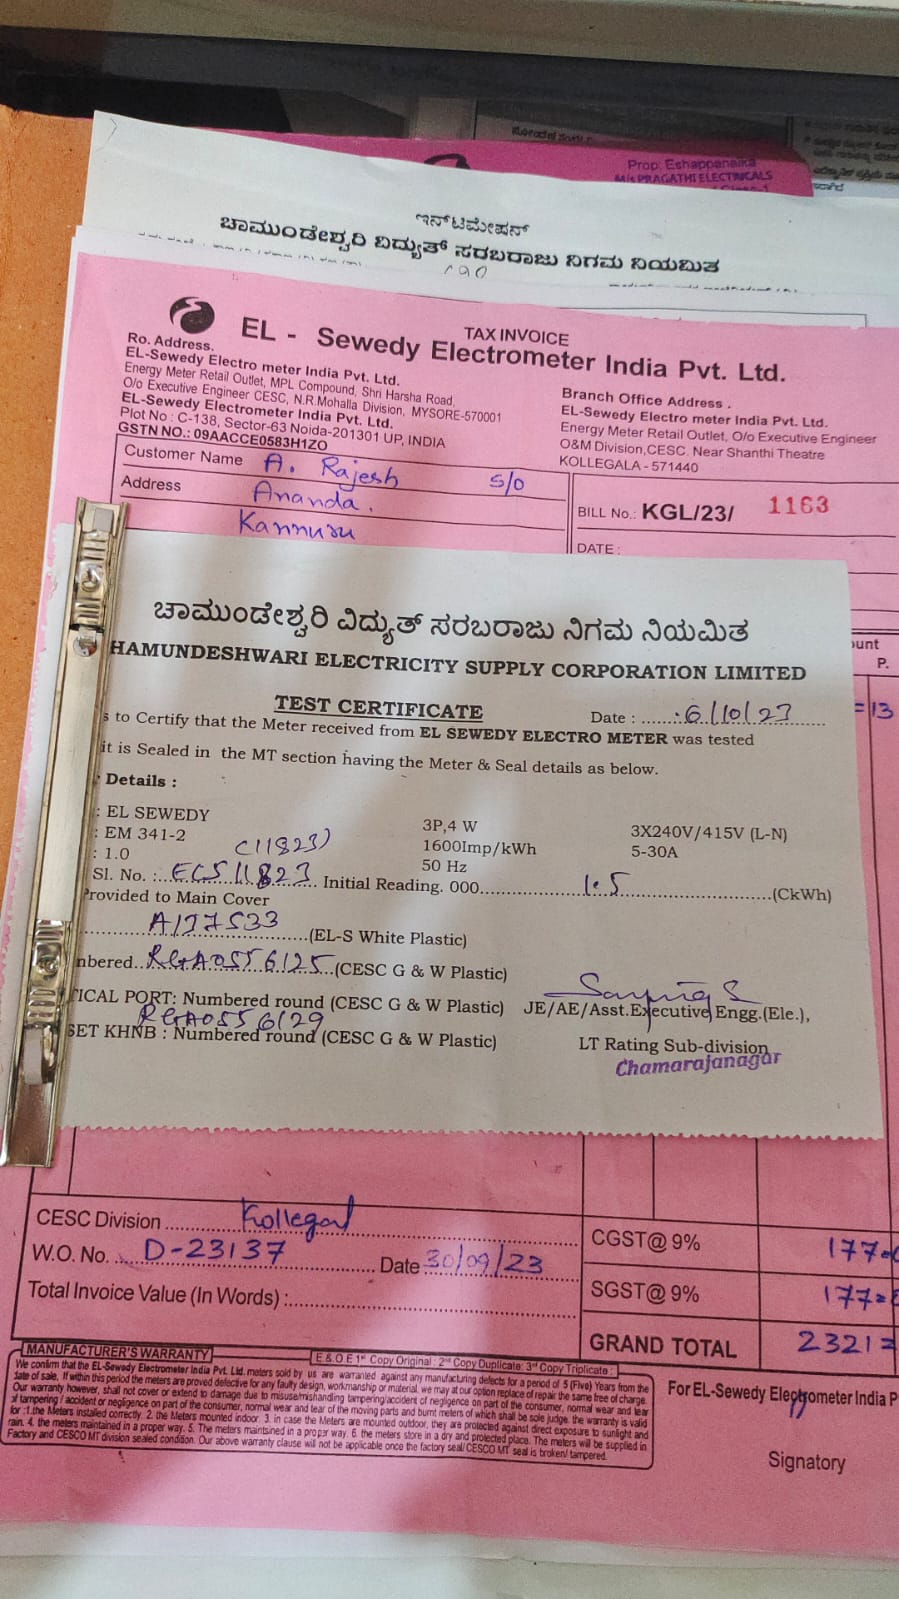 Prop: Eshappanaika
M/s PRAGATHI ELECTRICALS
ಇನ್‌ಟಿಮೇಷನ್
ಚಾಮುಂಡೇಶ್ವರಿ ವಿದ್ಯುತ್ ಸರಬರಾಜು ನಿಗಮ ನಿಯಮಿತ
TAX INVOICE
EL - Sewedy Electrometer India Pvt. Ltd.
Ro. Address.
EL-Sewedy Electro meter India Pvt. Ltd.
Energy Meter Retail Outlet, MPL Compound, Shri Harsha Road,
O/o Executive Engineer CESC, N.R.Mohalla Division, MYSORE-570001
EL-Sewedy Electrometer India Pvt. Ltd.
Plot No : C-138, Sector-63 Noida-201301 UP, INDIA
GSTN NO.: 09AACCE0583H1ZO
Branch Office Address .
EL-Sewedy Electro meter India Pvt. Ltd.
Energy Meter Retail Outlet, O/o Executive Engineer
O&M Division,CESC. Near Shanthi Theatre
KOLLEGALA - 571440
Customer Name A. Rajesh S/o
Address Ananda.
Kannuru
BILL No.: KGL/23/ 1163
DATE :
P.
=13
ಚಾಮುಂಡೇಶ್ವರಿ ವಿದ್ಯುತ್ ಸರಬರಾಜು ನಿಗಮ ನಿಯಮಿತ
HAMUNDESHWARI ELECTRICITY SUPPLY CORPORATION LIMITED
TEST CERTIFICATE
Date : 6/10/23
s to Certify that the Meter received from EL SEWEDY ELECTRO METER was tested
it is Sealed in the MT section having the Meter & Seal details as below.
Details :
: EL SEWEDY 3P,4 W 3X240V/415V (L-N)
: EM 341-2 (11823) 1600Imp/kWh 5-30A
: 1.0 50 Hz
Sl. No. : ECS11823 Initial Reading. 000 1.5 (CkWh)
Provided to Main Cover
A177533 (EL-S White Plastic)
nbered RGA0556125 (CESC G & W Plastic)
TICAL PORT: Numbered round (CESC G & W Plastic)
RGA0556129
SET KHNB : Numbered round (CESC G & W Plastic)
JE/AE/Asst.Executive Engg.(Ele.),
LT Rating Sub-division
Chamarajanagar
CESC Division Kollegal
W.O. No. D-23137 Date 30/09/23
Total Invoice Value (In Words) :
CGST@ 9% 177=
SGST@ 9% 177=
GRAND TOTAL 2321=
MANUFACTURER'S WARRANTY
E & O E 1st Copy Original : 2nd Copy Duplicate: 3rd Copy Triplicate :
We confirm that the EL-Sewedy Electrometer India Pvt. Ltd. meters sold by us are warranted against any manufacturing defects for a period of 5 (Five) Years from the
date of sale, If within this period the meters are proved defective for any faulty design, workmanship or material, we may at our option replace of repair the same free of charge.
Our warranty however, shall not cover or extend to damage due to misuse/mishandling tampering/accident of negligence on part of the consumer, normal wear and tear
of tampering / accident or negligence on part of the consumer, normal wear and tear of the moving parts and burnt meters of which shall be sole judge. the warranty is valid
for :1.the Meters installed correctly. 2. the Meters mounted indoor. 3. in case the Meters are mounted outdoor, they are protected against direct exposure to sunlight and
rain. 4. the meters maintained in a proper way. 5. The meters maintsined in a proper way. 6. the meters store in a dry and protected place. The meters will be supplied in
Factory and CESCO MT division sealed condition. Our above warranty clause will not be applicable once the factory seal/ CESCO MT seal is broken/ tampered.
For EL-Sewedy Electrometer India P
Signatory